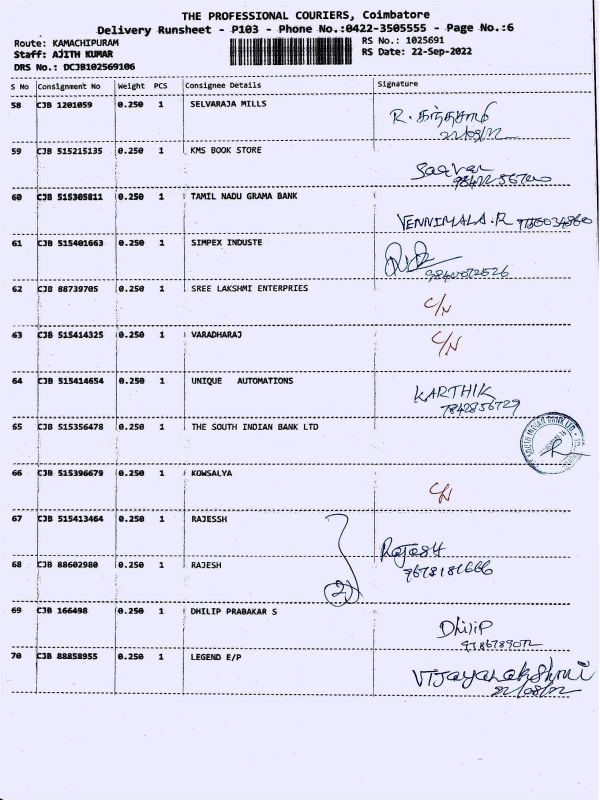 THE PROFESSIONAL COURIERS, Coimbatore
Delivery Runsheet - P103 - Phone No.:0422-3505555 - Page No.:6
Route: KAMACHIPURAM RS No.: 1025691
Staff: AJITH KUMAR RS Date: 22-Sep-2022
DRS No.: DCJB102569106
S No Consignment No Weight PCS Consignee Details Signature
58 CJB 1201059 0.250 1 SELVARAJA MILLS R.
59 CJB 515215135 0.250 1 KMS BOOK STORE
60 CJB 515305811 0.250 1 TAMIL NADU GRAMA BANK VENNIMALA.R
61 CJB 515401663 0.250 1 SIMPEX INDUSTE
62 CJB 88739705 0.250 1 SREE LAKSHMI ENTERPRIES C/N
63 CJB 515414325 0.250 1 VARADHARAJ C/N
64 CJB 515414654 0.250 1 UNIQUE AUTOMATIONS KARTHIK
7842856729
65 CJB 515356478 0.250 1 THE SOUTH INDIAN BANK LTD SOUTH INDIAN BANK LTD
66 CJB 515396679 0.250 1 KOWSALYA C/N
67 CJB 515413464 0.250 1 RAJESSH
Rajesh
68 CJB 88602980 0.250 1 RAJESH 9678181666
2
69 CJB 166498 0.250 1 DHILIP PRABAKAR S Dhilip
70 CJB 88858955 0.250 1 LEGEND E/P Vijayalakshmi